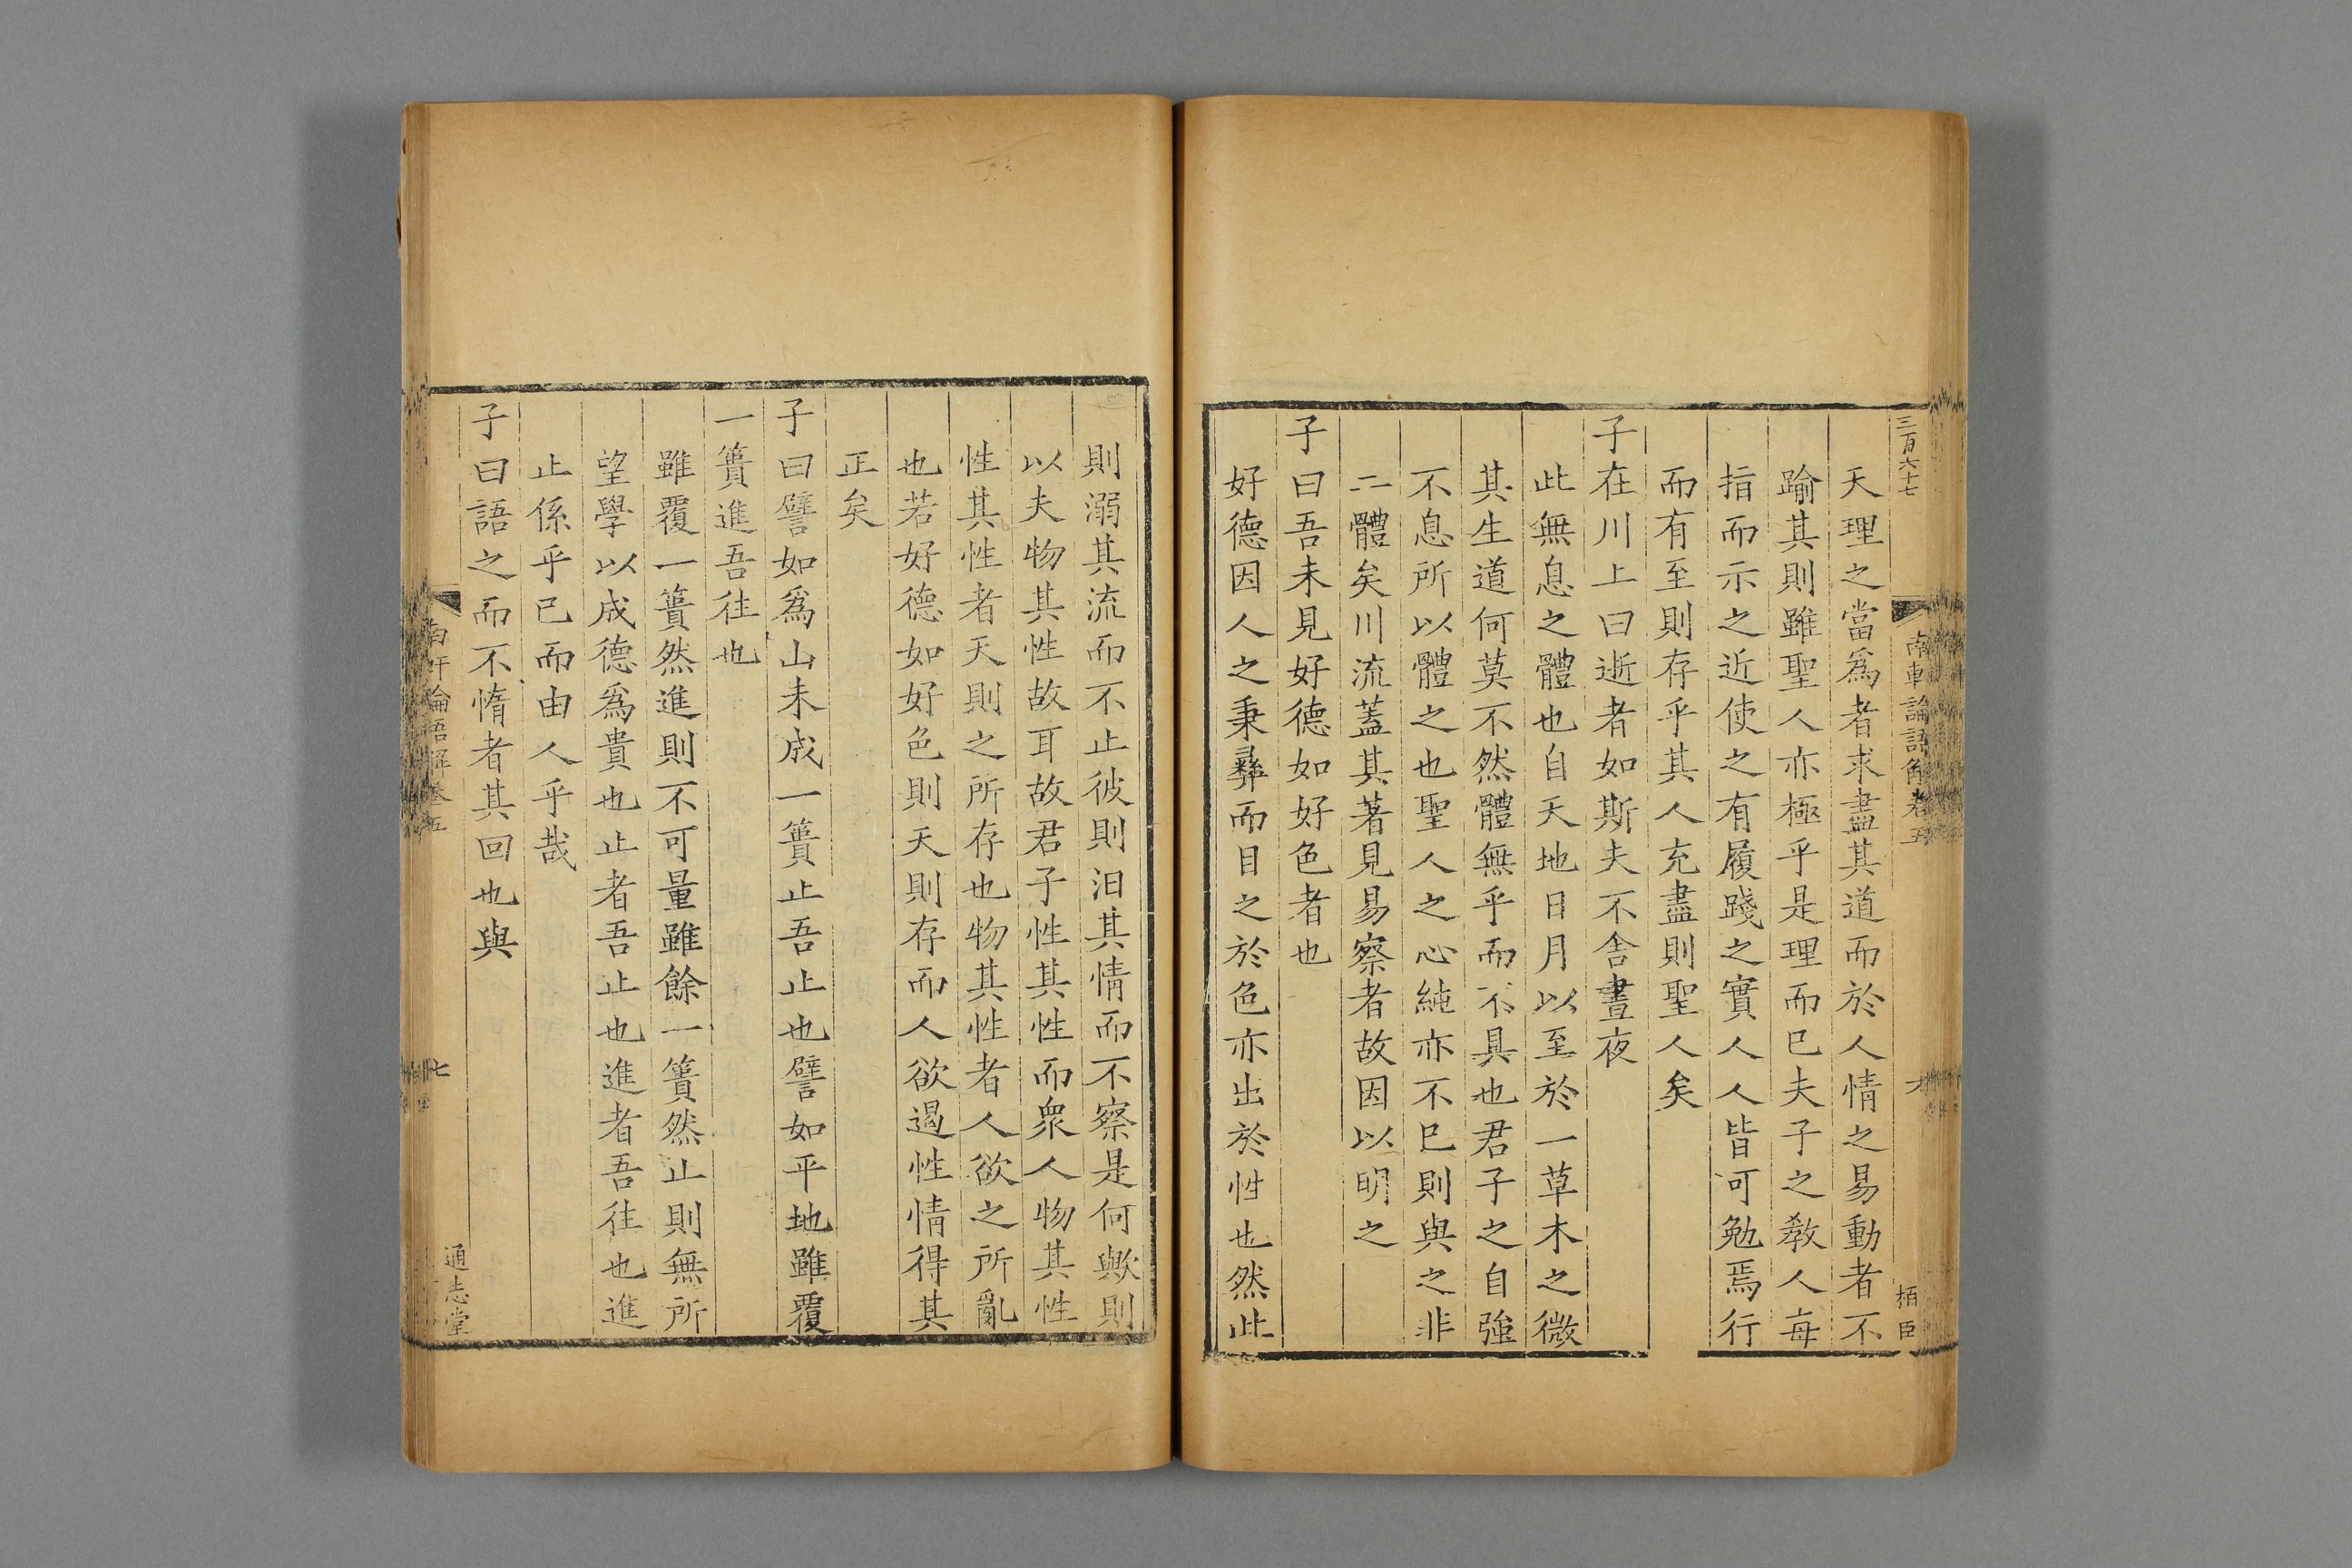 三百六十七
天理之當爲者求盡其道而於人情之易動者不
踰其則雖聖人亦極乎是理而已夫子之敎人每
指而示之近使之有履踐之實人人皆可勉焉行
而有至則存乎其人充盡則聖人矣
子在川上曰逝者如斯夫不舍晝夜
此無息之體也自天地日月以至於一草木之微
其生道何莫不然體無乎而不具也君子之自強
不息所以體之也聖人之心純亦不已則與之非
二體矣川流蓋其著見易察者故因以明之
子曰吾未見好德如好色者也
好德因人之秉彛而目之於色亦出於性也然此
南軒論語解卷五
栢臣
則溺其流而不止彼則汨其情而不察是何歟則
以夫物其性故耳故君子性其性而衆人物其性
性其性者天則之所存也物其性者人欲之所亂
也若好德如好色則天則存而人欲遏性情得其
正矣
子曰譬如爲山未成一簣止吾止也譬如平地雖覆
一簣進吾往也
雖覆一簣然進則不可量雖餘一簣然止則無所
望學以成德爲貴也止者吾止也進者吾往也進
止係乎已而由人乎哉
子曰語之而不惰者其回也與
南軒論語解卷五
七
通志堂